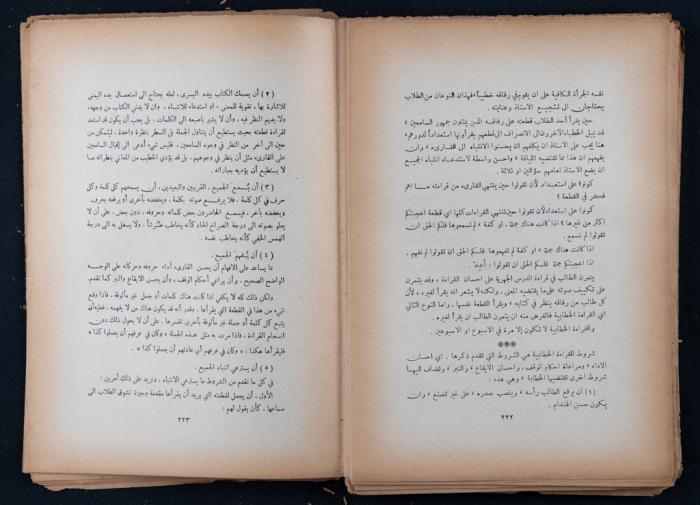 نفسه الجرأة الكافية على ان يقوم في رفاقه خطيباً فهذان النوعان من الطلاب
يحتاجان الى تشجيع الاستاذ وعنايته .
حين يقرأ أحد الطلاب قطعته على رفاقه الذين يمثلون جمهور السامعين ،
قد يميل الخطباء الآخرون الى الانصراف الى قطعهم يقرأونها استعداداً لدورهم ،
هنا يجب على الاستاذ ان يكلفهم ان يحسنوا الانتباه الى القارىء ، وان
يفهمهم ان هذا مما تقتضيه اللياقة ، واحسن واسطة لاستدعاء انتباه الجميع
ان يضع الاستاذ امامهم سؤالين او ثلاثة .
كونوا على استعداد لأن تقولوا حين ينتهي القارىء من قراءته ما اهم
فكر في القطعة ؟
كونوا على استعداد لأن تقولوا حين تنتهي القراءات كلها اي قطعة اعجبتكم
اكثر من غيرها ؟ اذا كانت هناك جملة ، او كلمة ، لم تسمعوها فلكم الحق ان
تقولوا لم نسمع .
اذا كانت هناك جملة ، او كلمة لم تفهموها فلكم الحق ان تقولوا لم نفهم .
اذا اعجبتكم جملة فلكم الحق ان تقولوا : أعِد .
يتمرن الطالب في قراءة الدرس الجهرية على احسان القراءة ، وقد يتمرن
على تكييف صوته على ما يقتضيه المعنى ، ولكنه لا يشعر انه يقرأ لغيره ، لأن
كل طالب من رفاقه ينظر في كتابه ، ويقرأ القطعة نفسها ، واما النوع الثاني
اي القراءة الخطابية فالغرض منه ان يتمرن الطالب ان يقرأ لغيره .
والقراءة الخطابية لا تكون إلا مرة في الاسبوع او الاسبوعين .
***
شروط القراءة الخطابية هي الشروط التي تقدم ذكرها . اي احسان
الاداء ، ومراعاة احكام الوقف ، واحسان الايقاع ، والنبر ، وتضاف اليها
شروط اخرى تقتضيها الخطابة ، وهي هذه :
(١) ان يرفع الطالب رأسه ، وينصب صدره ، على غير تصنع ، وان
يكون حسن الهندام .
٢٢٢
(٢) أن يمسك الكتاب بيده اليسرى ، لعله يحتاج الى استعمال يده اليمنى
للاشارة بها ، تقوية للمعنى ، او استدعاء للانتباه ، وان لا يدني الكتاب من وجهه ،
ولا يديم النظر فيه ، وأن لا يشير باصبعه الى الكلمات ، بل يجب أن يكون قد استعد
لقراءة قطعته بحيث يستطيع أن يتناول الجملة في السطر بنظرة واحدة ، ليتمكن من
حين الى آخر من النظر في وجوه السامعين ، فليس شيء أدعى الى إقبال السامعين
على القارىء مثل أن ينظر في وجوههم ، بل قد يؤدي الخطيب من المعاني بنظراته ما
لا يستطيع أن يؤديه بعباراته .
(٣) أن يُسمع الجميع ، القريبين والبعيدين ، أن يسمعهم كل كلمة وكل
حرف في كل كلمة . فلا يرفع صوته بكلمة ، ويخفضه بأخرى أو يرفعه بحرف
ويخفضه بآخر ، فيسمع الحاضرون بعض كلماته وحروفه ، دون بعض ، على أن لا
يعلو بصوته الى درجة الصراخ الحاد كأنه يخاطب طُرْشاً ، ولا يسفل به الى درجة
الهمس الخفي كأنه يخاطب نفسه .
(٤) أن يُفهم الجميع .
مما يساعد على الافهام ان يحسن القارىء أداء حروفه وحركاته على الوجه
الواضح الصحيح ، وأن يراعي أحكام الوقف ، وأن يحسن الايقاع والنبر كما تقدم .
ولكن ذلك كله لا يكفي اذا كانت هناك كلمات أو جمل غير مألوفة ، فاذا وقع
شيء من هذا في القطعة التي يقرأها ، وقدر أنه قد يكون هناك من لا يفهمه ، فعليه أن
يتبع كل كلمة أو جملة غير مألوفة بأخرى تفسرها . على أن لا يحول ذلك دون
انسجام القراءة ، فاذا مرت به مثل هذه الجملة « وكان في عرفهم أن يعملوا كذا »
فليقرأها هكذا : « وكان في عرفهم أي عادتهم أن يعملوا كذا » .
(٥) أن يسترعي انتباه الجميع .
في كل ما تقدم من الشروط ما يسترعي الانتباه ، ونزيد على ذلك أمرين :
الأول . أن يجعل لقطعته التي يريد أن يقرأها مقدمة وجيزة تشوق الطلاب الى
سماعها ، كأن يقول لهم :
٢٢٣